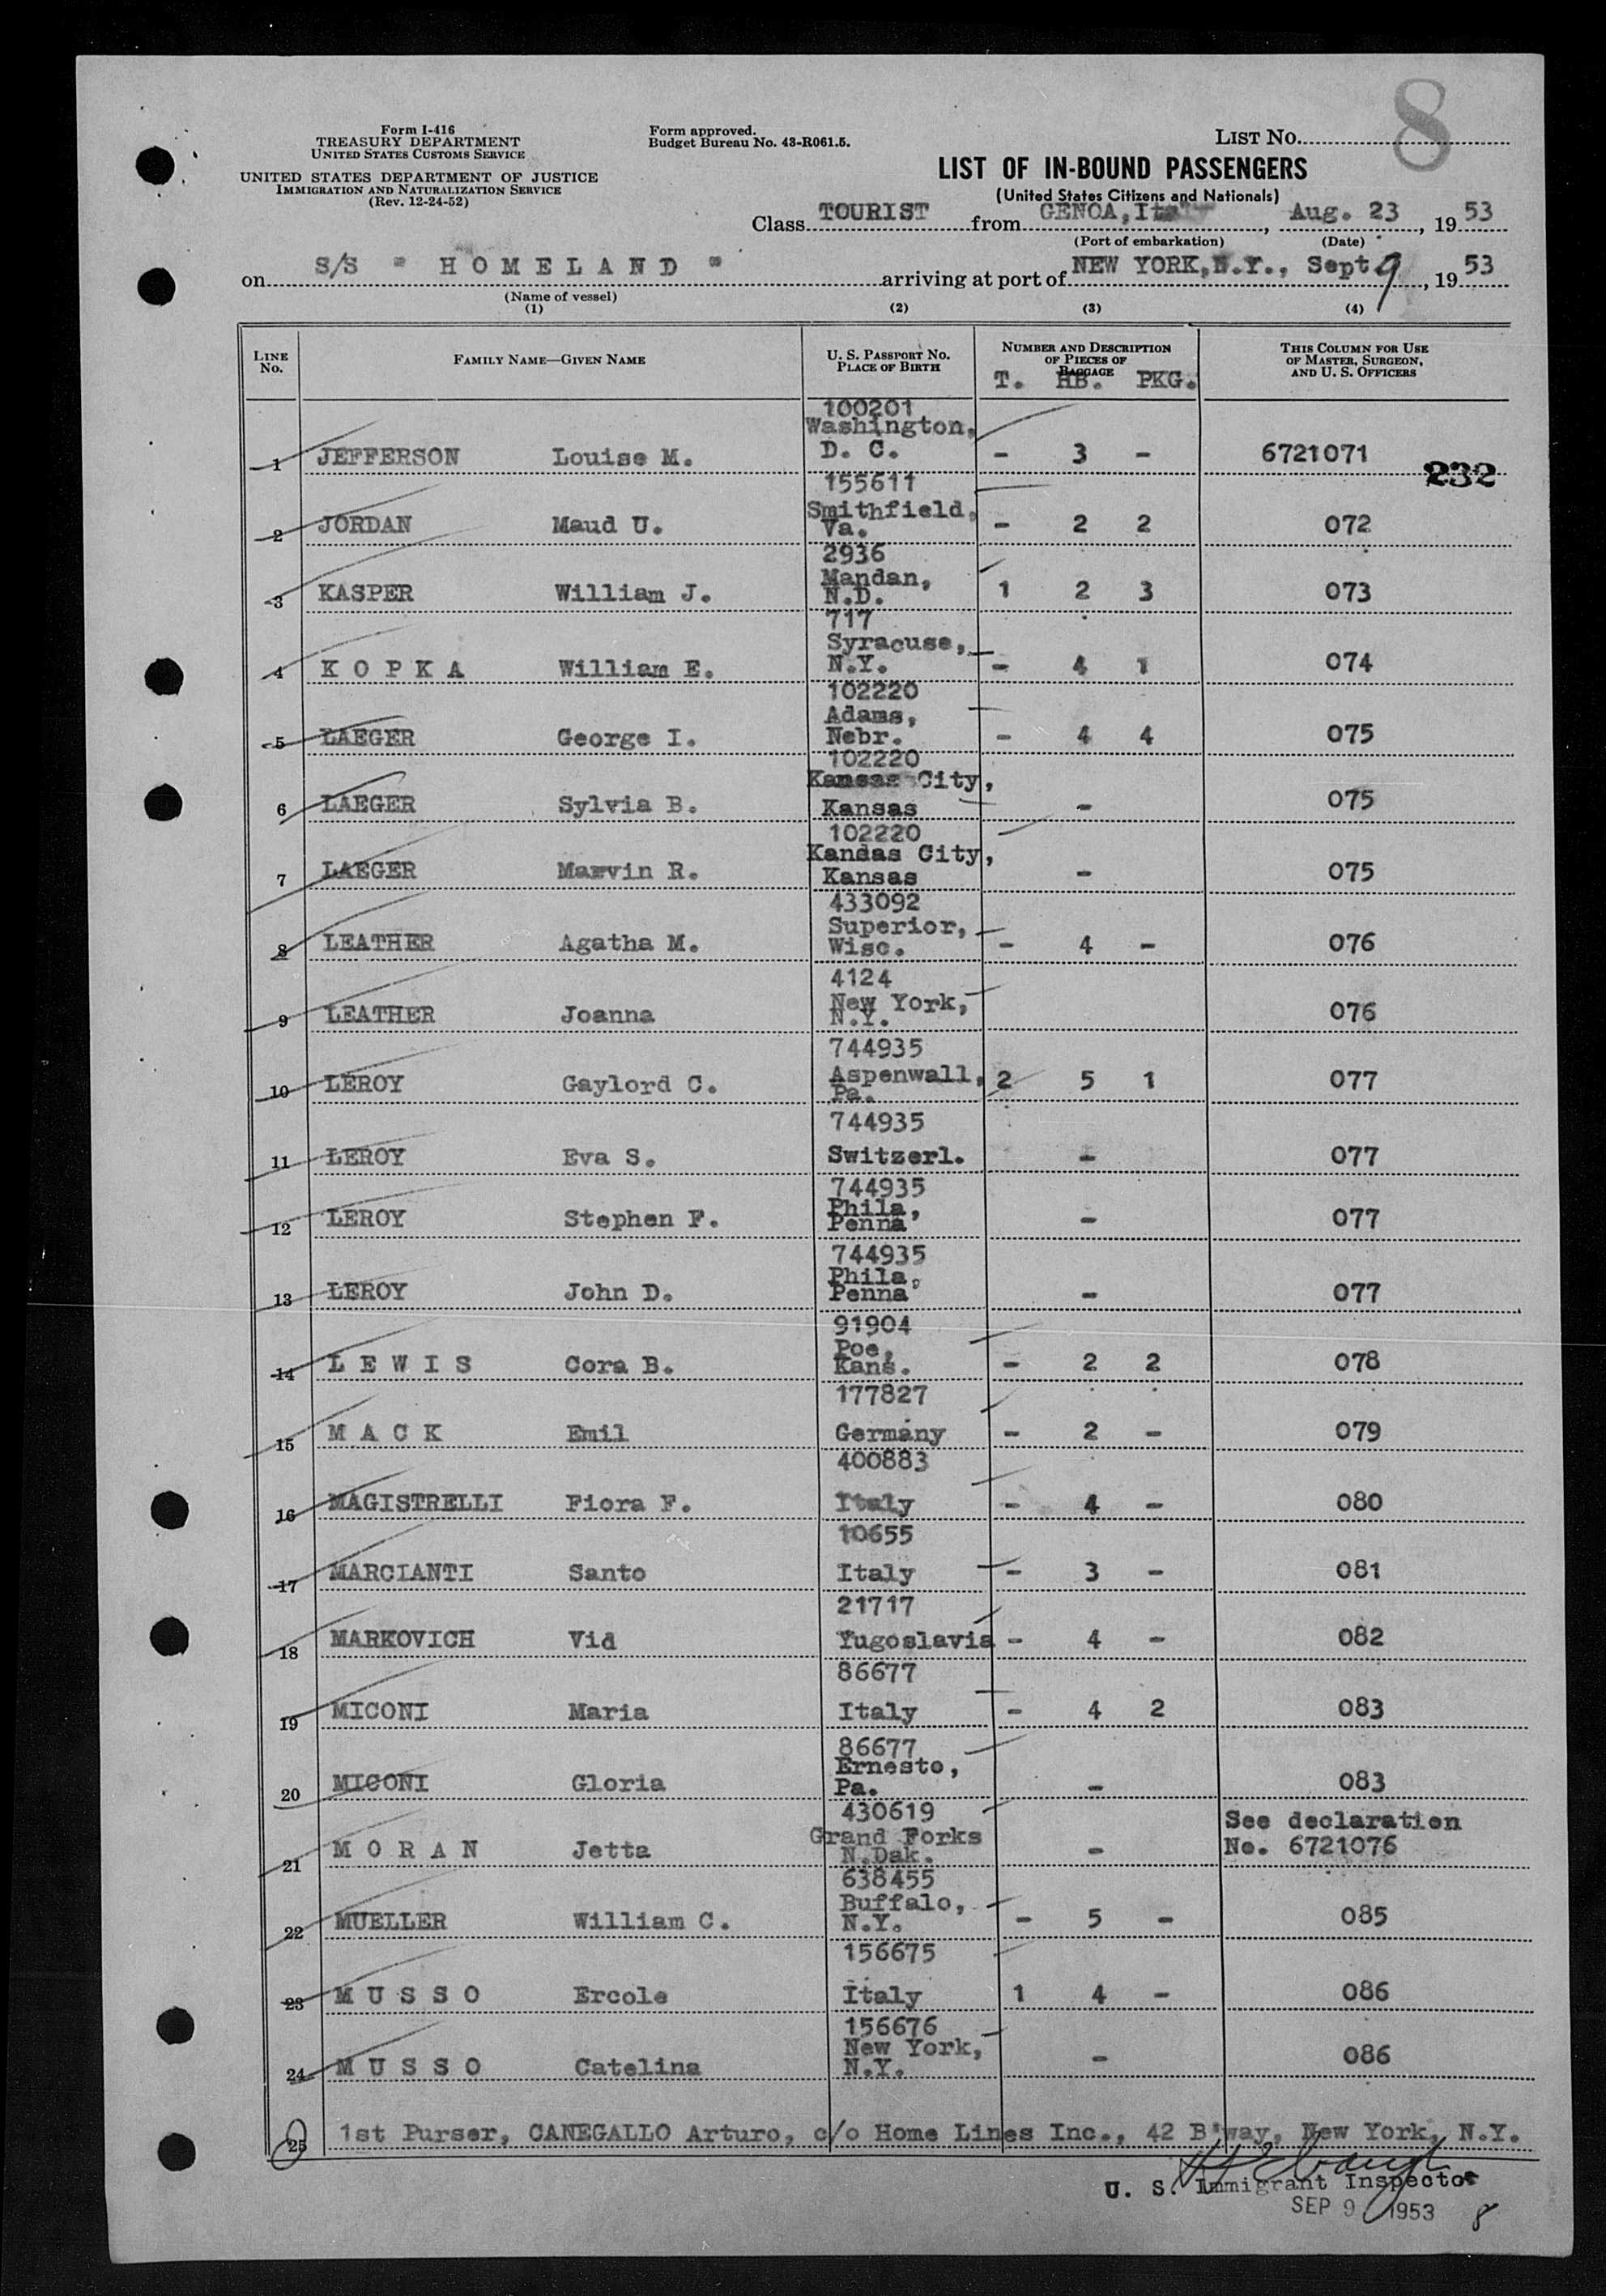 8
Form I-416
TREASURY DEPARTMENT
UNITED STATES CUSTOMS SERVICE
UNITED STATES DEPARTMENT OF JUSTICE
IMMIGRATION AND NATURALIZATION SERVICE
(Rev. 12-24-52)
Form approved.
Budget Bureau No. 43-R061.5.
LIST NO.
LIST OF IN-BOUND PASSENGERS
(United States Citizens and Nationals)
Class TOURIST from GENOA, Italy, Aug. 23, 19 53
(Port of embarkation) (Date)
on S/S " H O M E L A N D " arriving at port of NEW YORK, N.Y., Sept 9, 19 53
(Name of vessel)
(1) (2) (3) (4)
LINE NO. FAMILY NAME—GIVEN NAME U. S. PASSPORT NO. PLACE OF BIRTH NUMBER AND DESCRIPTION OF PIECES OF BAGGAGE THIS COLUMN FOR USE OF MASTER, SURGEON, AND U. S. OFFICERS
T. HB. PKG.
100201
Washington,
1 JEFFERSON Louise M. D. C. - 3 - 6721071
232
155611
Smithfield,
2 JORDAN Maud U. Va. - 2 2 072
2936
Mandan,
3 KASPER William J. N.D. 1 2 3 073
717
Syracuse,
4 K O P K A William E. N.Y. - 4 1 074
102220
Adams,
5 LAEGER George I. Nebr. - 4 4 075
102220
Kansas City,
6 LAEGER Sylvia B. Kansas - 075
102220
Kandas City,
7 LAEGER Marvin R. Kansas - 075
433092
Superior,
8 LEATHER Agatha M. Wisc. - 4 - 076
4124
New York,
9 LEATHER Joanna N.Y. 076
744935
Aspenwall,
10 LEROY Gaylord C. Pa. 2 5 1 077
744935
11 LEROY Eva S. Switzerl. - 077
744935
Phila,
12 LEROY Stephen F. Penna - 077
744935
Phila,
13 LEROY John D. Penna - 077
91904
Poe,
14 L E W I S Cora B. Kans. - 2 2 078
177827
15 M A C K Emil Germany - 2 - 079
400883
16 MAGISTRELLI Fiora F. Italy - 4 - 080
10655
17 MARCIANTI Santo Italy - 3 - 081
21717
18 MARKOVICH Vid Yugoslavia - 4 - 082
86677
19 MICONI Maria Italy - 4 2 083
86677
Ernesto,
20 MICONI Gloria Pa. - 083
430619
Grand Forks See declaration
21 M O R A N Jetta N.Dak. - No. 6721076
638455
Buffalo,
22 MUELLER William C. N.Y. - 5 - 085
156675
23 M U S S O Ercole Italy 1 4 - 086
156676
New York,
24 M U S S O Catelina N.Y. - 086
25 1st Purser, CANEGALLO Arturo, c/o Home Lines Inc., 42 B'way, New York, N.Y.
U. S. Immigrant Inspector
SEP 9 1953 8